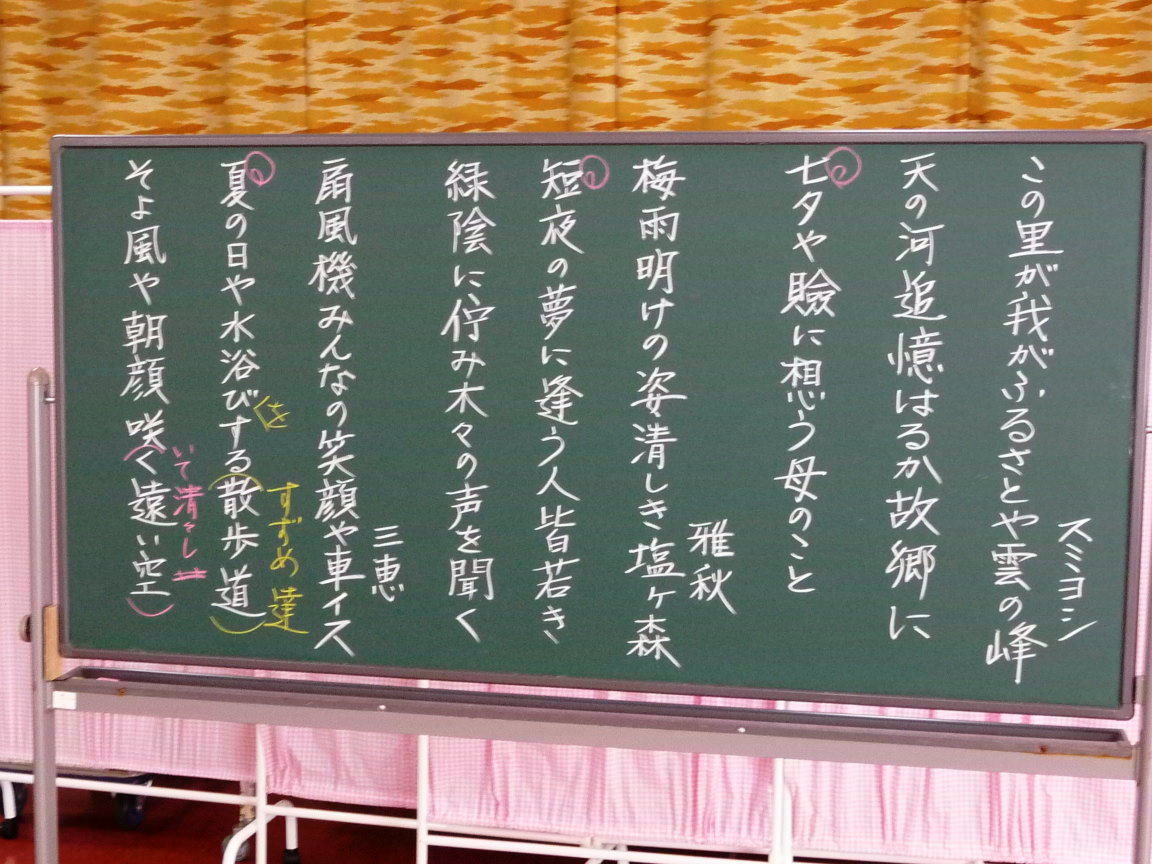 この里が我がふるさとや雲の峰
スミヨシ
天の河追憶はるか故郷に
七夕や瞼に想う母のこと
梅雨明けの姿清しき塩ヶ森
雅秋
短夜の夢に逢う人皆若き
緑陰に佇み木々の声を聞く
扇風機みんなの笑顔や車イス
三恵
夏の日や水浴びする(散歩道)
くを
すずめ達
そよ風や朝顔咲(く遠い空)
いて清々し